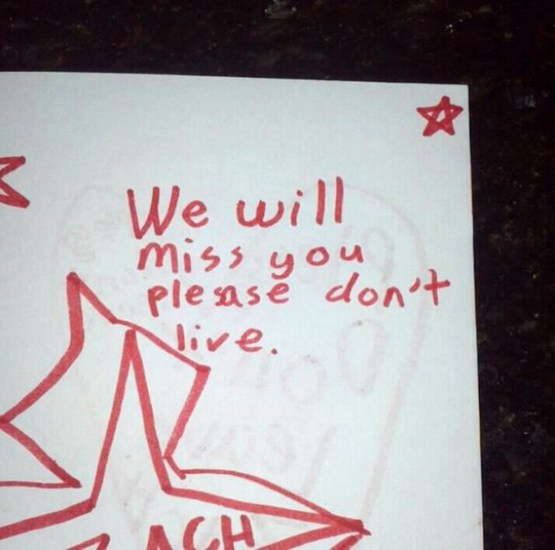 We will
miss you
please don't
live.
ACH